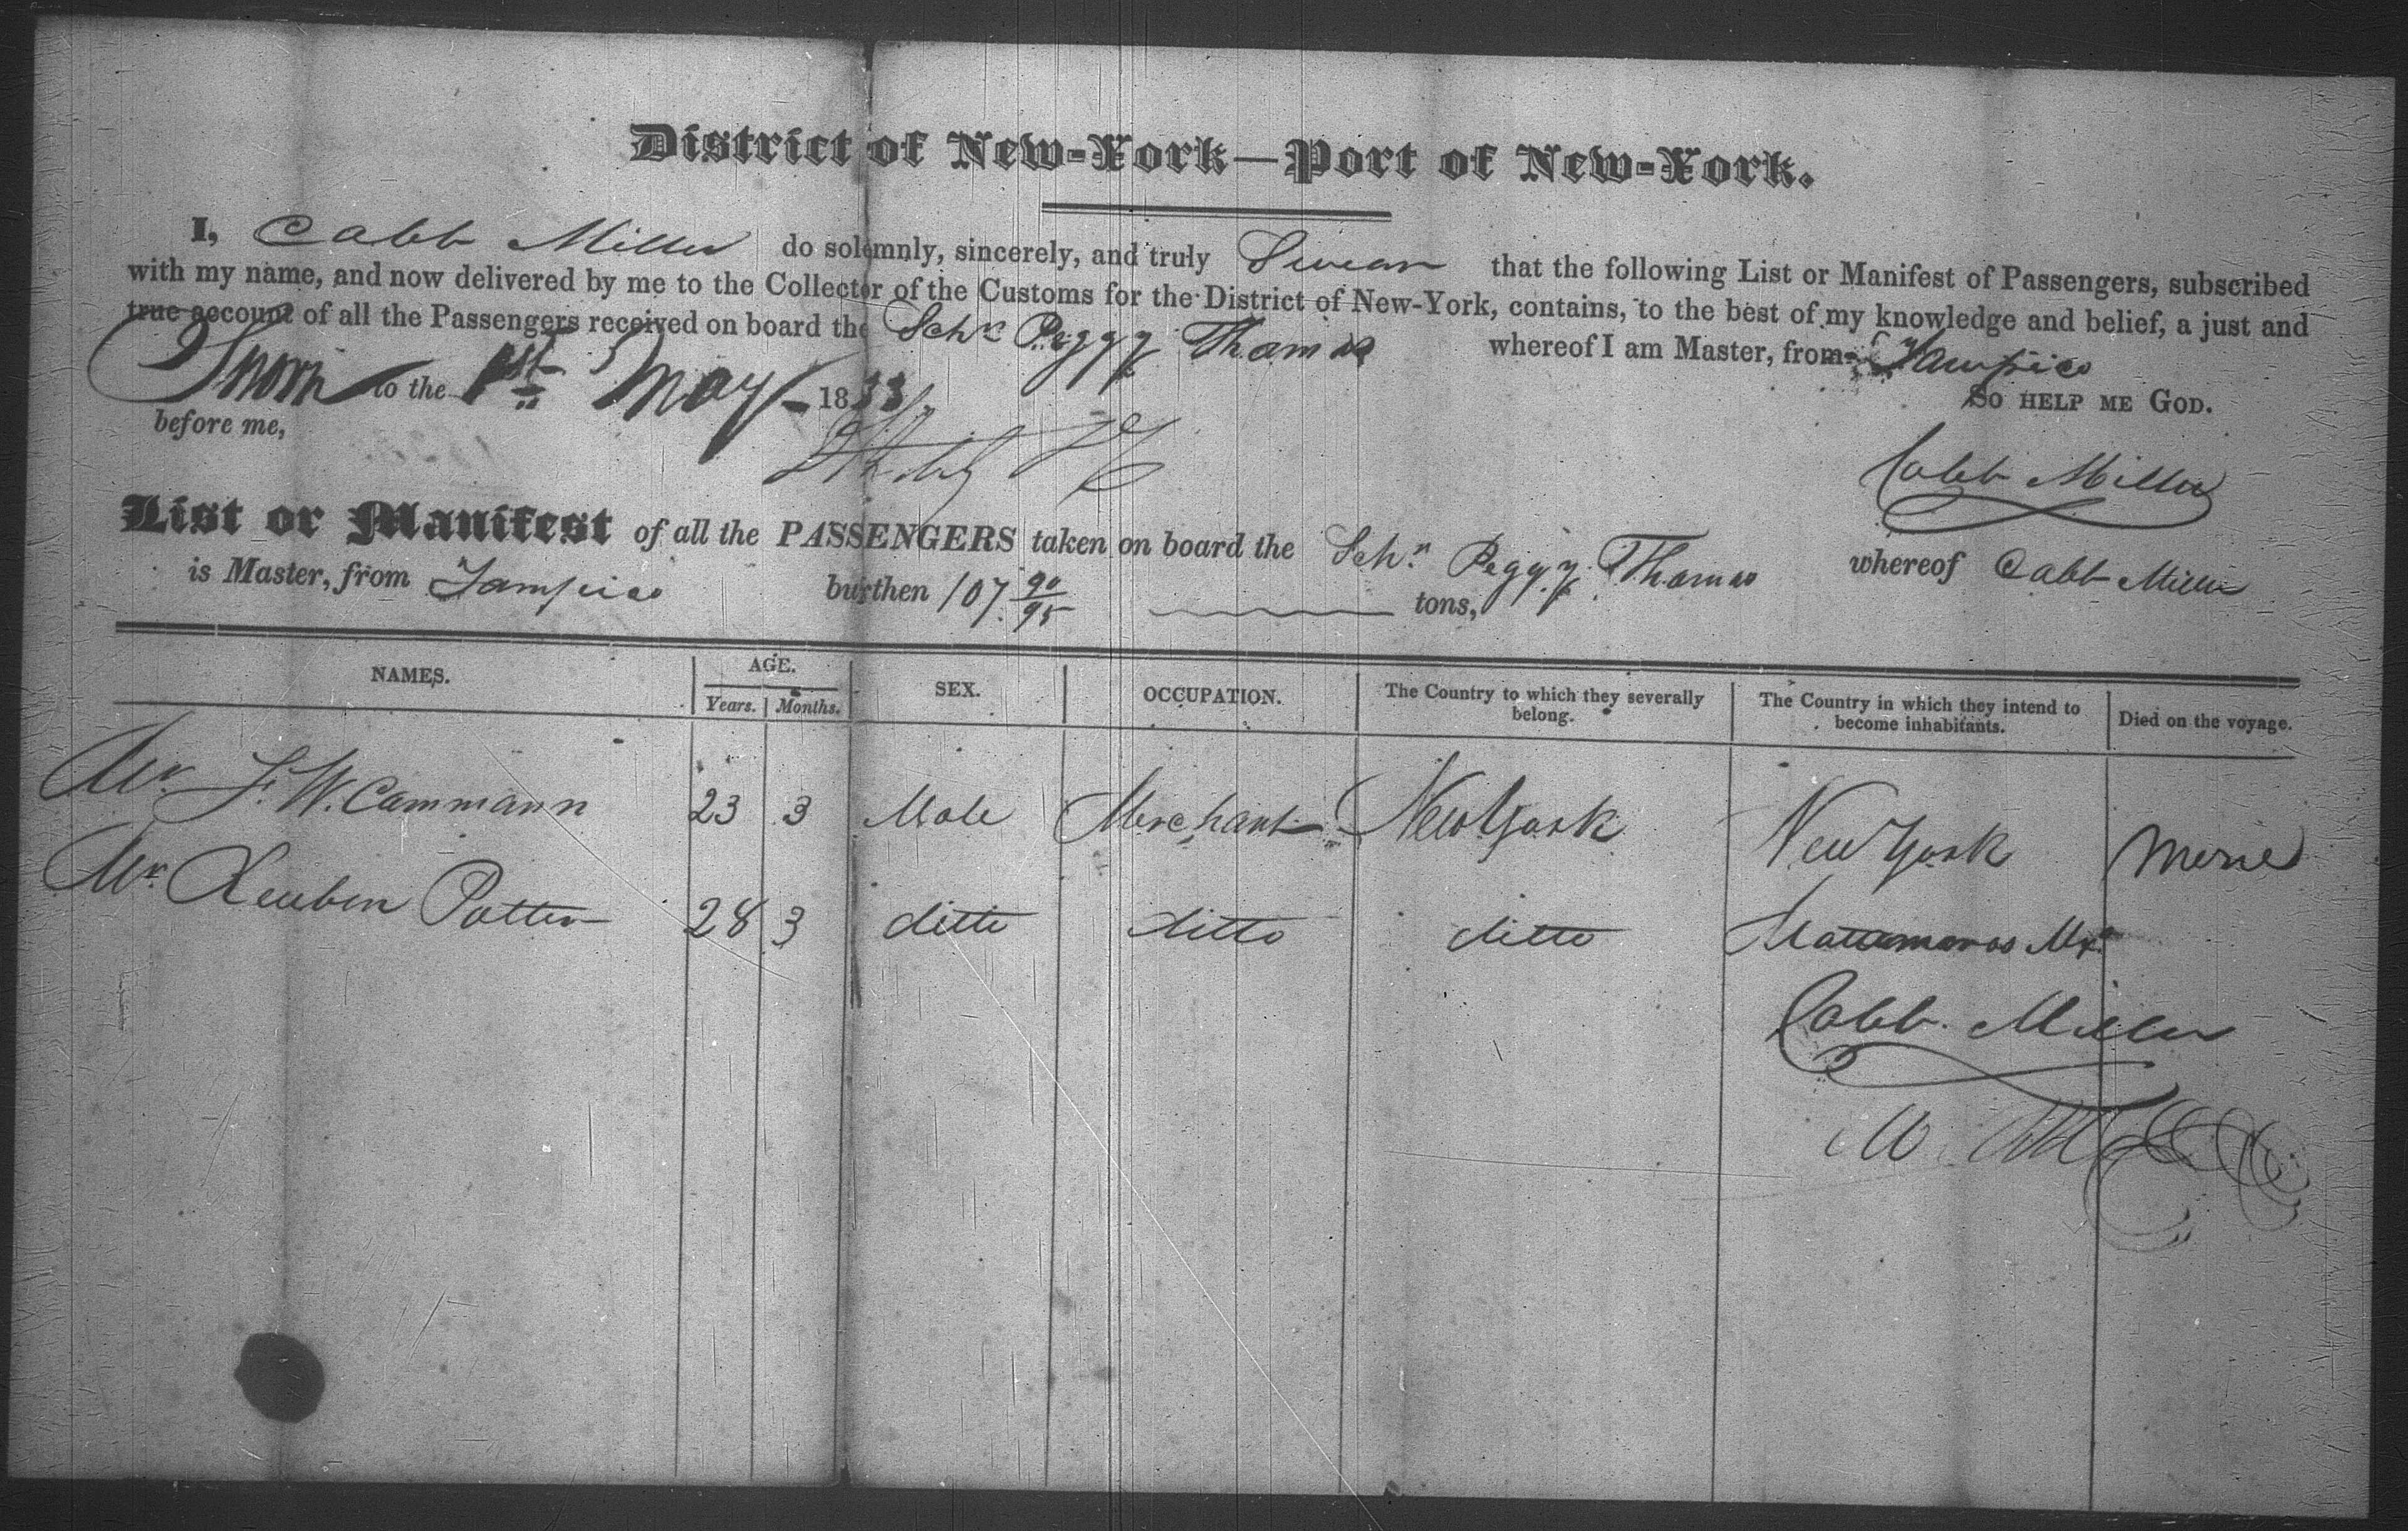 District of New-York—Port of New-York.
I, Cabb Miller do solemnly, sincerely, and truly Swear that the following List or Manifest of Passengers, subscribed
with my name, and now delivered by me to the Collector of the Customs for the District of New-York, contains, to the best of my knowledge and belief, a just and
true account of all the Passengers received on board the Schr Peggy Thomas whereof I am Master, from Tampico
Sworn to the 1st May 1833 So help me God.
before me,
Caleb Miller
List or Manifest of all the PASSENGERS taken on board the Schr Peggy Thomas whereof Cabb Miller
is Master, from Tampico burthen 107 90/95 tons,
NAMES. AGE. SEX. OCCUPATION. The Country to which they severally belong. The Country in which they intend to become inhabitants. Died on the voyage.
Years. Months.
Mr. F. W. Cammann 23 3 Male Merchant New York New York
Mr. Reuben Potter 28 3 ditto ditto ditto Matamoras Mx
Caleb Miller